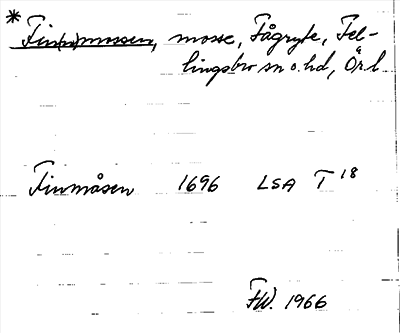 * Fin(n)mossen, mosse, Fågryte, Fel-
lingsbro sn o. hd, Ör. l
Finmåsen 1696 LSA T 18
FW. 1966